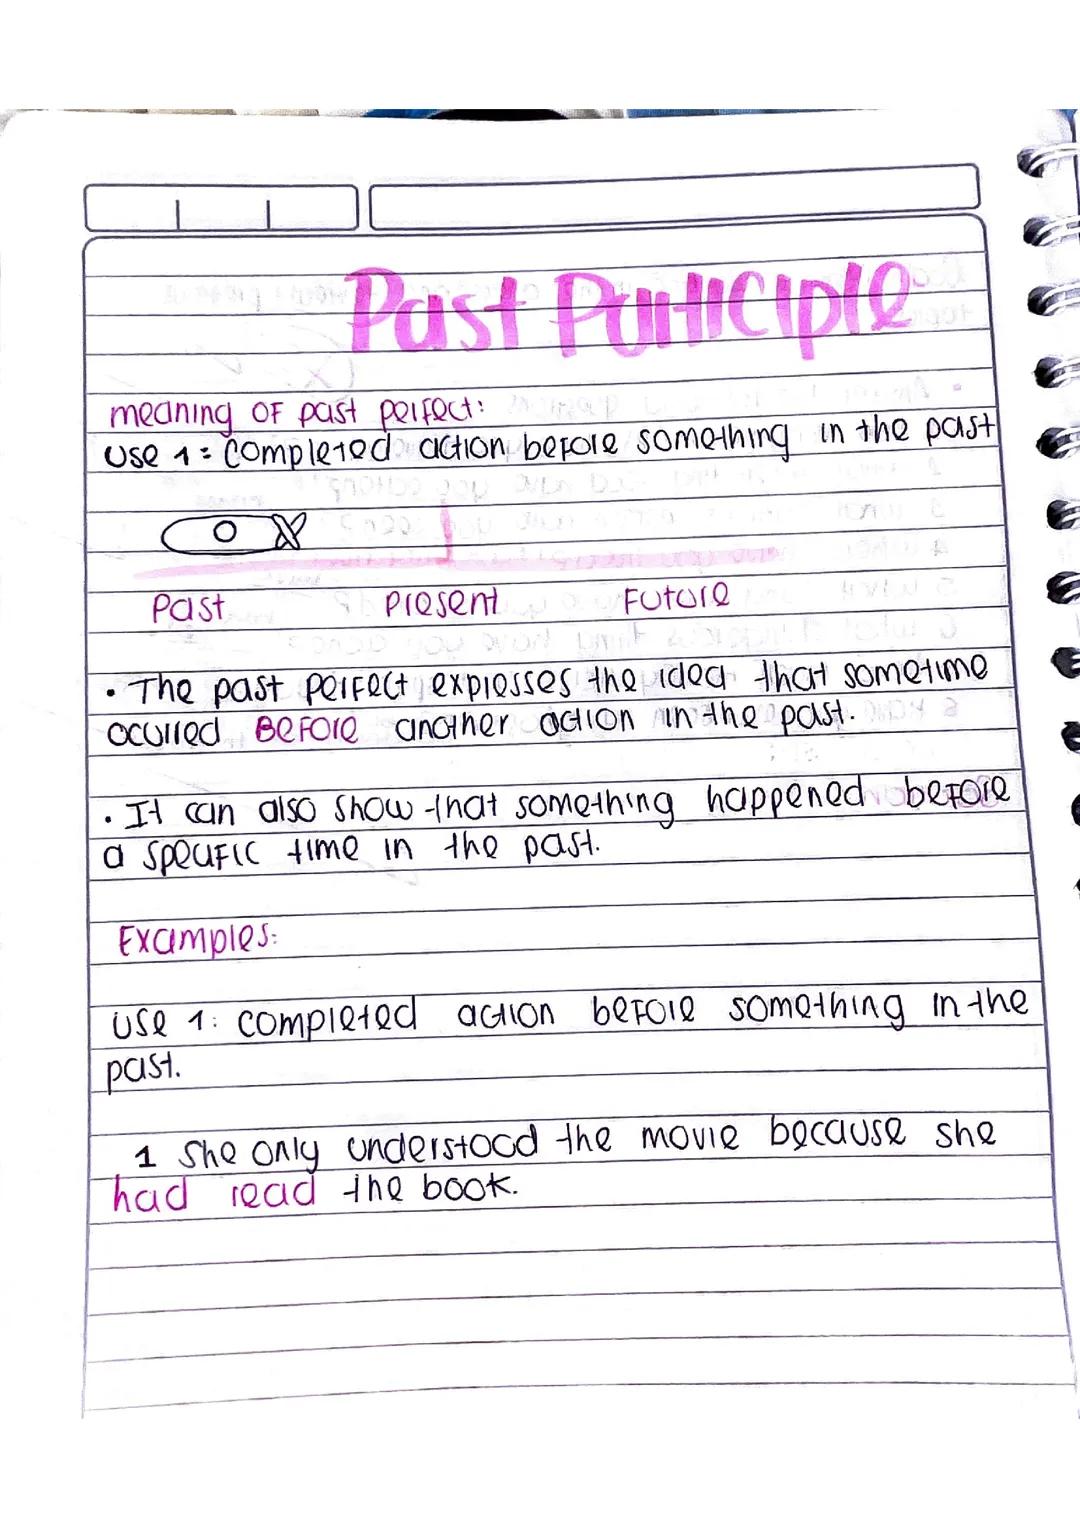 Past Participle
meaning of past perfect:
Use 1: Completed action before something in the past
Past Present Future
• The past perfect expresses the idea that sometime
ocurred BEFORE another action in the past.
• It can also show that something happened before
a specific time in the past.
Examples:
Use 1: completed action before something in the
past.
1 She only understood the movie because she
had read the book.